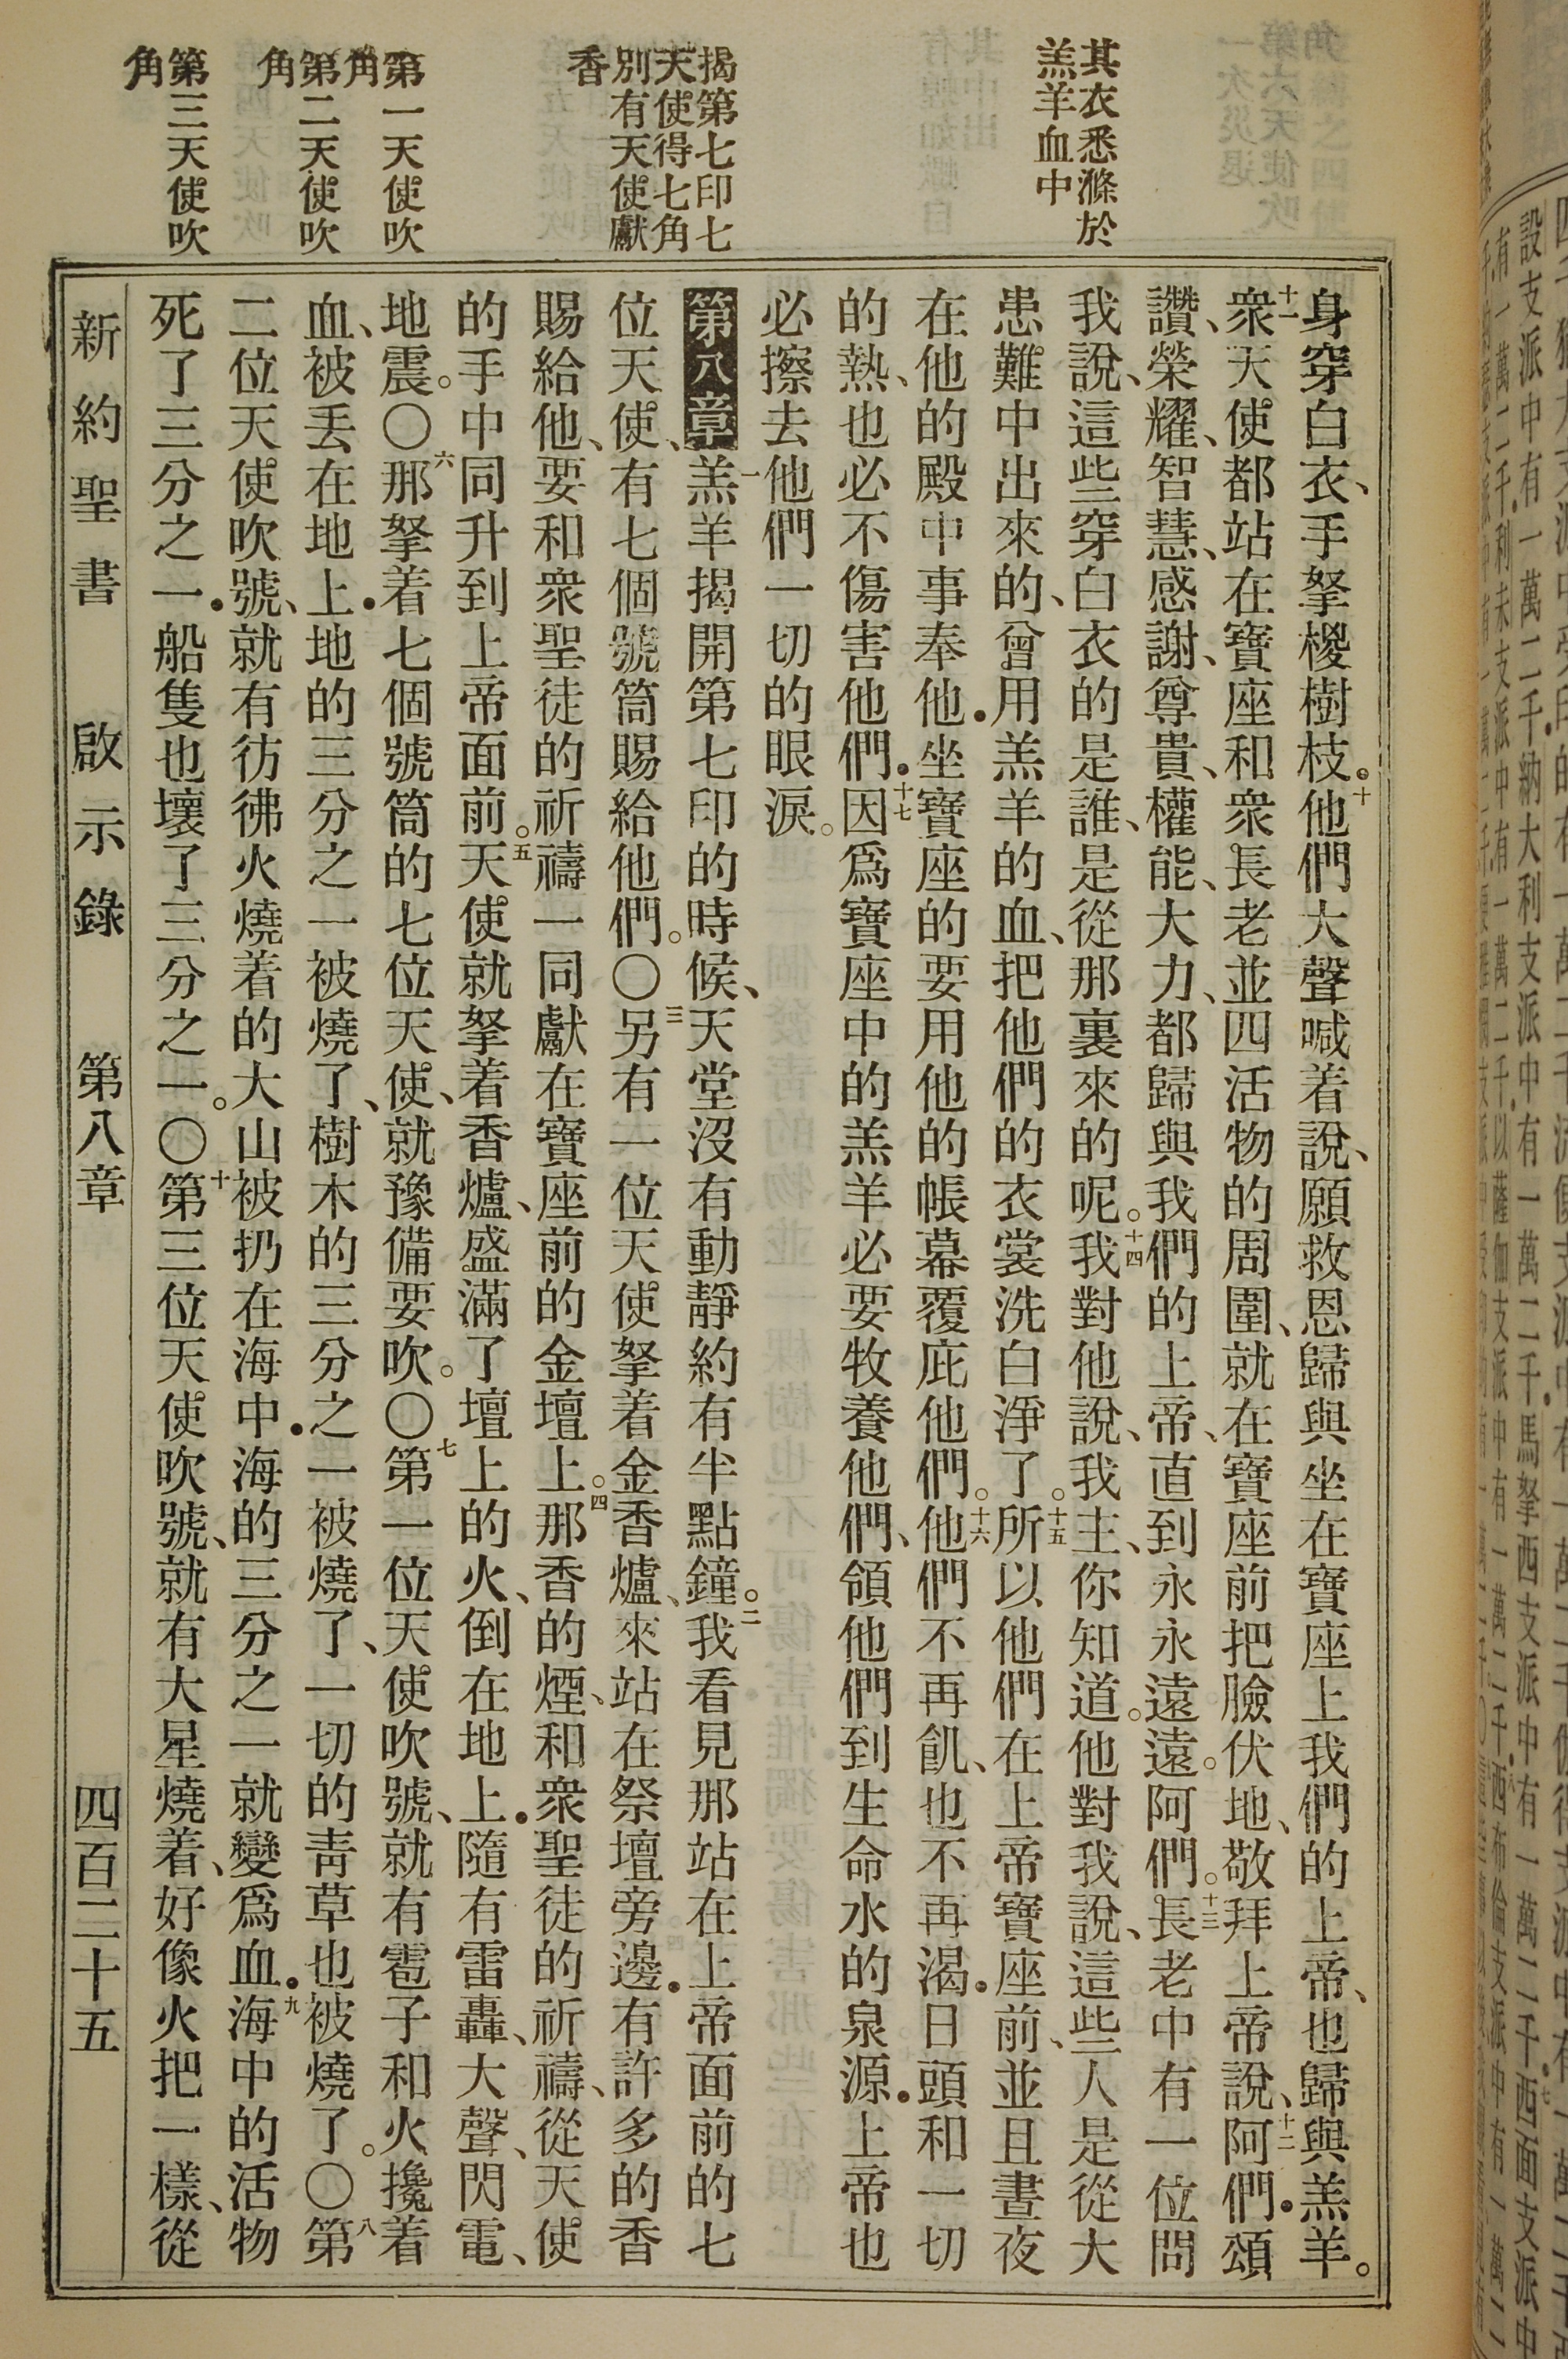 其衣悉滌於
羔羊血中
揭第七印七
天使得七角
別有天使獻
香
第一天使吹
角
第二天使吹
角
第三天使吹
角
身穿白衣、手拏椶樹枝。十他們大聲喊着說、願救恩歸與坐在寶座上我們的上帝、也歸與羔羊。
十一衆天使都站在寶座和衆長老並四活物的周圍、就在寶座前把臉伏地、敬拜上帝說、十二阿們•頌
讚、榮耀、智慧、感謝、尊貴、權能、大力、都歸與我們的上帝、直到永永遠遠。阿們。十三長老中有一位問
我說、這些穿白衣的是誰、是從那裏來的呢。十四我對他說、我主、你知道。他對我說、這些人是從大
患難中出來的、曾用羔羊的血、把他們的衣裳洗白淨了。十五所以他們在上帝寶座前、並且晝夜
在他的殿中事奉他•坐寶座的要用他的帳幕覆庇他們。十六他們不再飢、也不再渴•日頭和一切
的熱、也必不傷害他們•十七因爲寶座中的羔羊必要牧養他們、領他們到生命水的泉源•上帝也
必擦去他們一切的眼淚。
第八章 一羔羊揭開第七印的時候、天堂沒有動靜約有半點鐘。二我看見那站在上帝面前的七
位天使、有七個號筒賜給他們。〇三另有一位天使拏着金香爐、來站在祭壇旁邊•有許多的香
賜給他、要和衆聖徒的祈禱一同獻在寶座前的金壇上。四那香的煙、和衆聖徒的祈禱、從天使
的手中同升到上帝面前。五天使就拏着香爐、盛滿了壇上的火、倒在地上•隨有雷轟、大聲、閃電、
地震。〇六那拏着七個號筒的七位天使、就豫備要吹。〇七第一位天使吹號、就有雹子和火攙着
血、被丟在地上•地的三分之一被燒了、樹木的三分之一被燒了、一切的青草也被燒了。〇八第
二位天使吹號、就有彷彿火燒着的大山被扔在海中•海的三分之一就變爲血•九海中的活物
死了三分之一•船隻也壞了三分之一。〇十第三位天使吹號、就有大星燒着、好像火把一樣、從
新約聖書 啟示錄 第八章 四百二十五